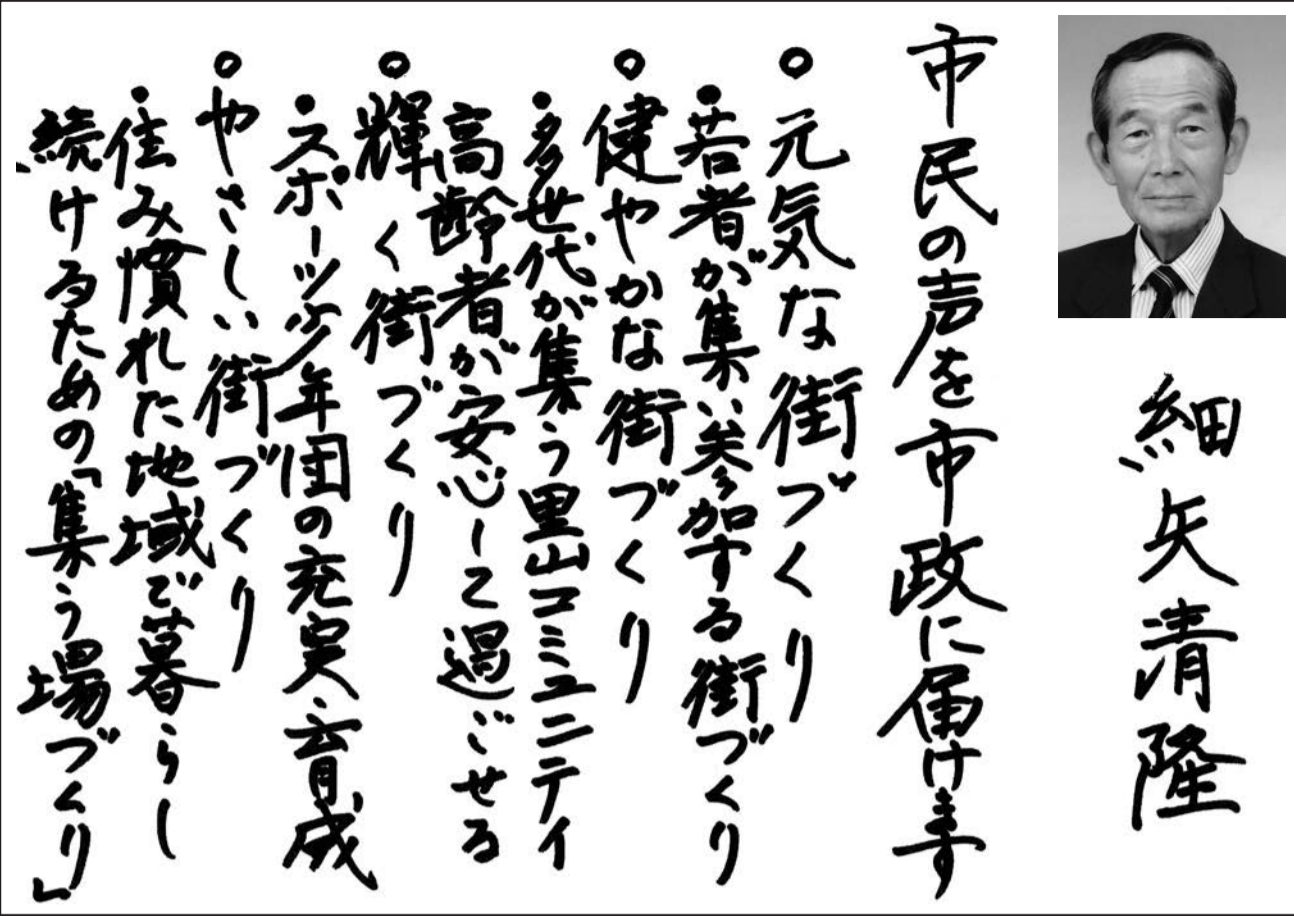 細矢清隆
市民の声を市政に届けます
○元気な街づくり
・若者が集い参加する街づくり
○健やかな街づくり
・多世代が集う里山コミュニティ
高齢者が安心して過ごせる
○輝く街づくり
・スポーツ少年団の充実、育成
○やさしい街づくり
・住み慣れた地域で暮らし
続けるための「集う場づくり」